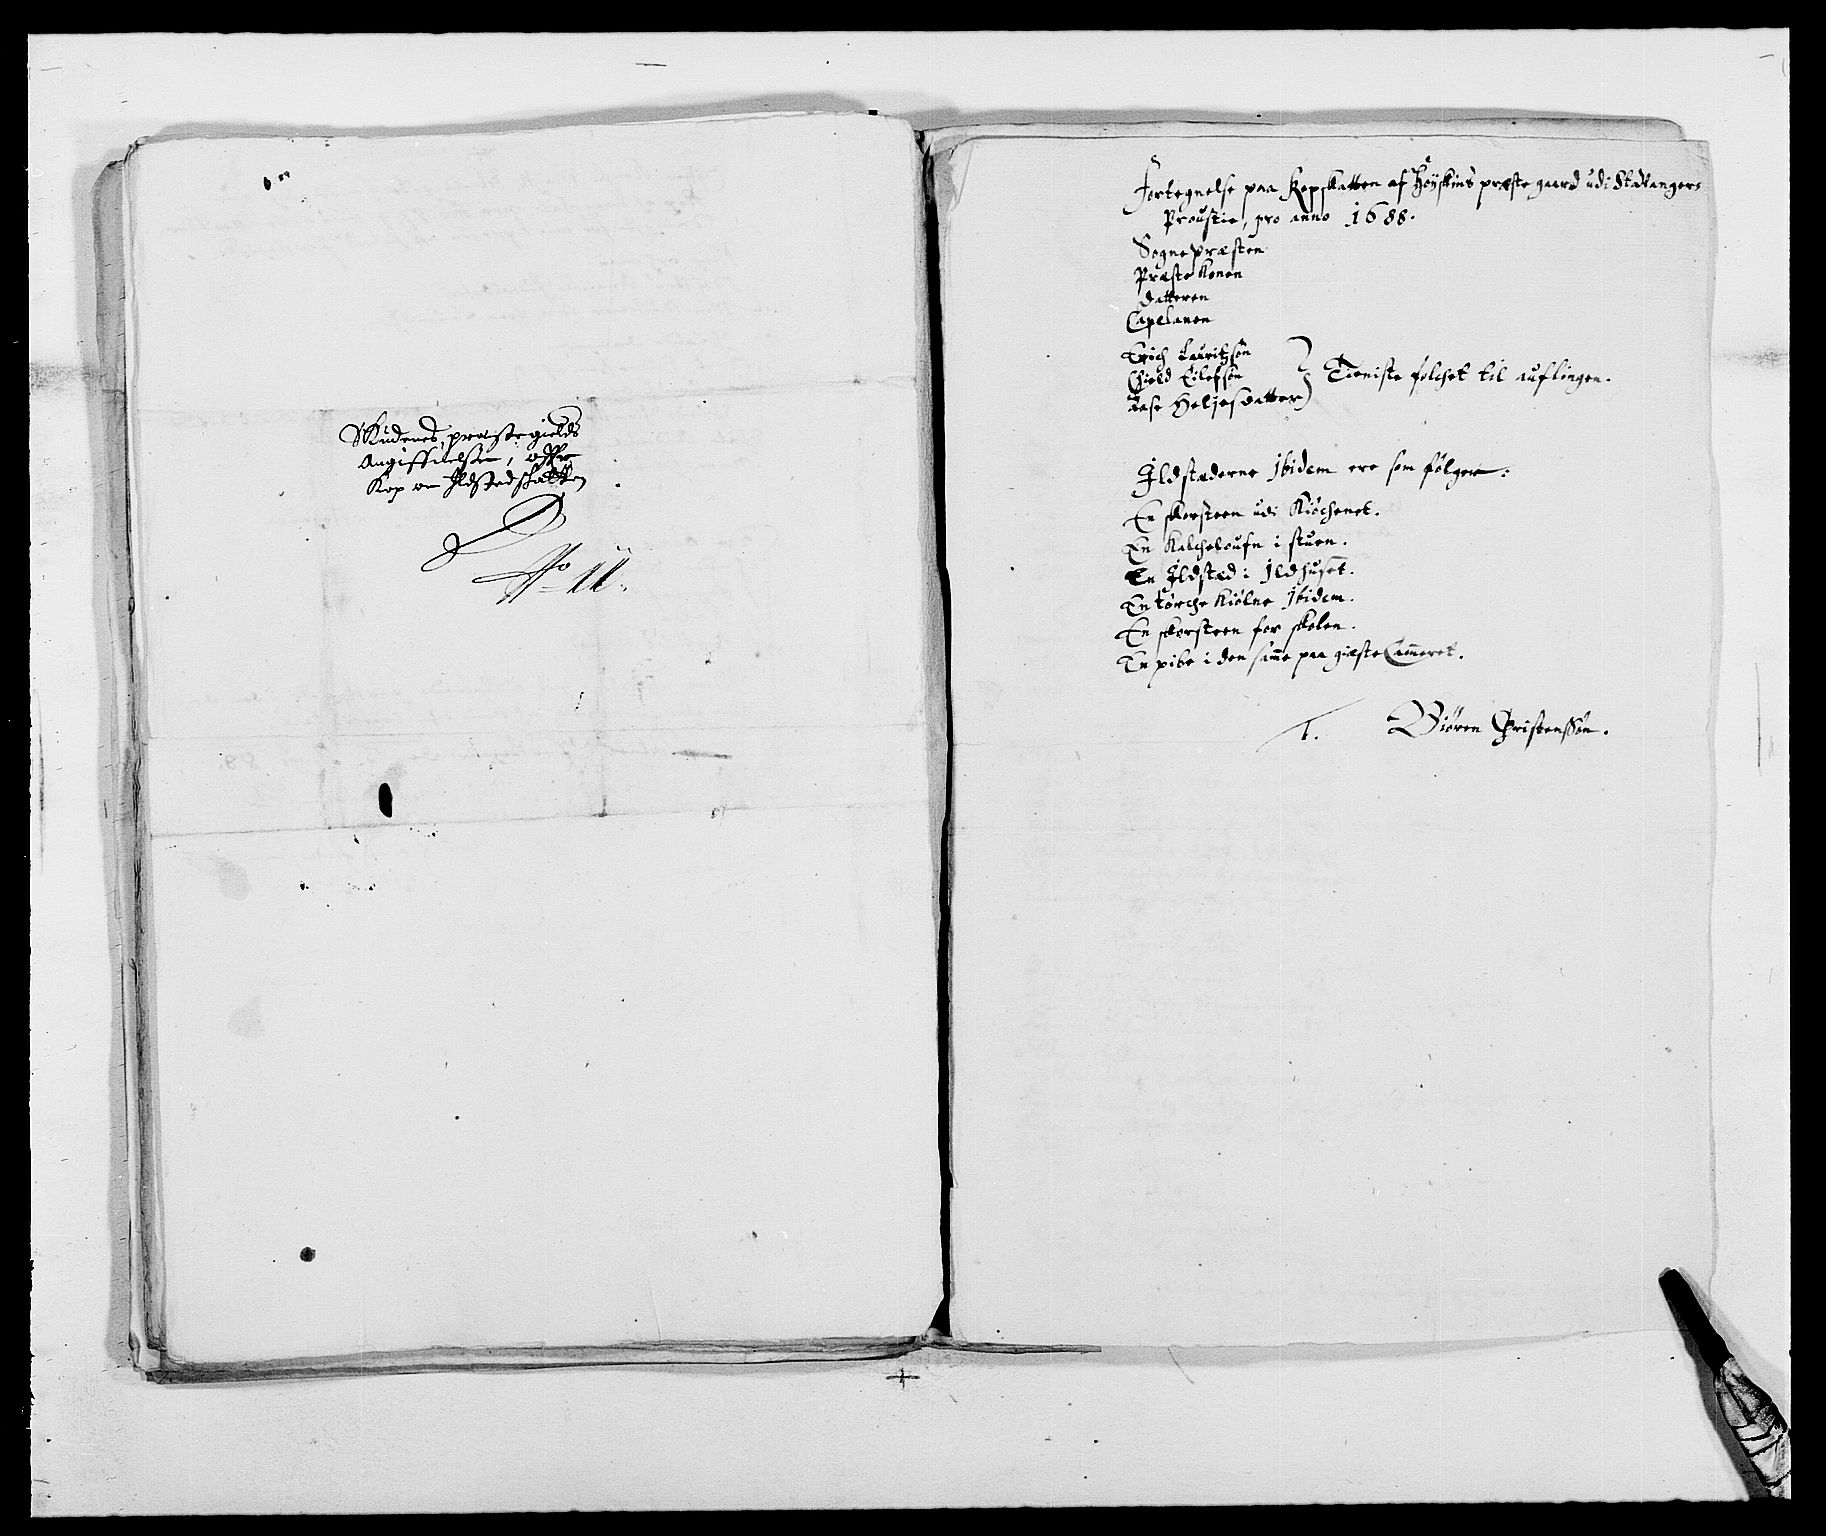 Skudenes præstegields
Angiffuelse,
Kop oc Ildstedskatten
No 11.
Fortegnelse paa Kopskatten af præste gaard udi Stavangers
Proustie, pro anno 1688.
Sognepræsten
Præstekonen
Datteren
Capelanen
Erich Lauritzsøn
Eilefsøn
Aase Heljesdatter
Tieniste folchet til auflingen.
Ildstæderne Ibidem ere som følger:
En skorsteen udi Kiøchenet.
En Kalcheloufn i stuen.
En Ildstæd i Ildhuset.
En tørche Kiølne Ibidem.
En skorsteen for skolen.
En pibe i den samme paa giæste Cammeret.
Biøren Christenssøn.